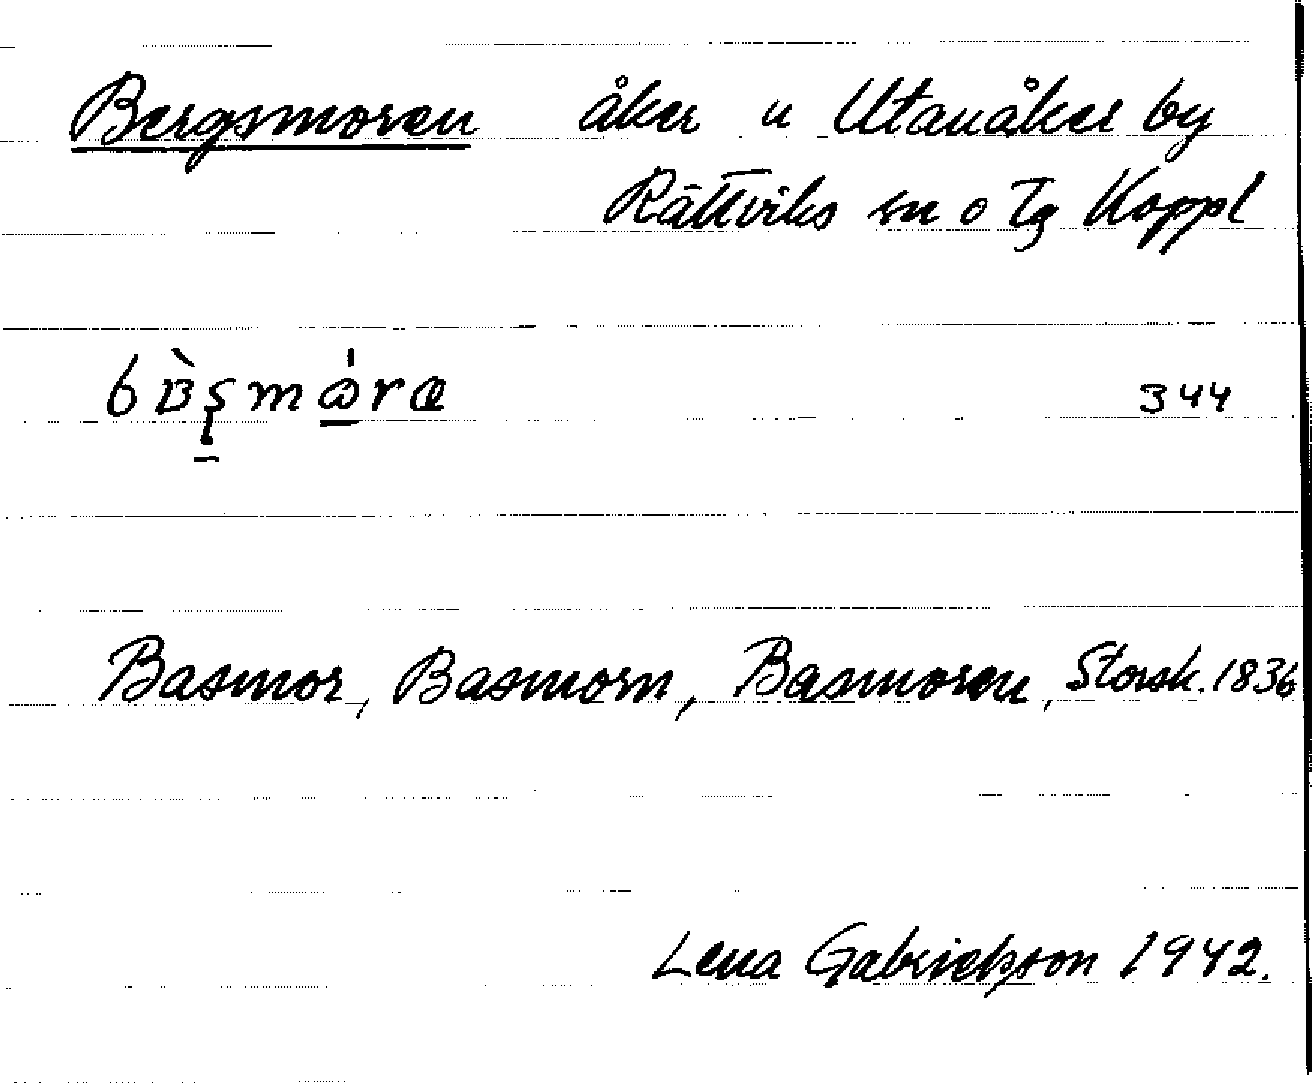 Bergsmoren åker u Utanåker by
Rättviks sn o Tg Koppl
344
Basmor, Basmorn, Basmoren, Storsk. 1836
Lena Gabrielsson 1942.